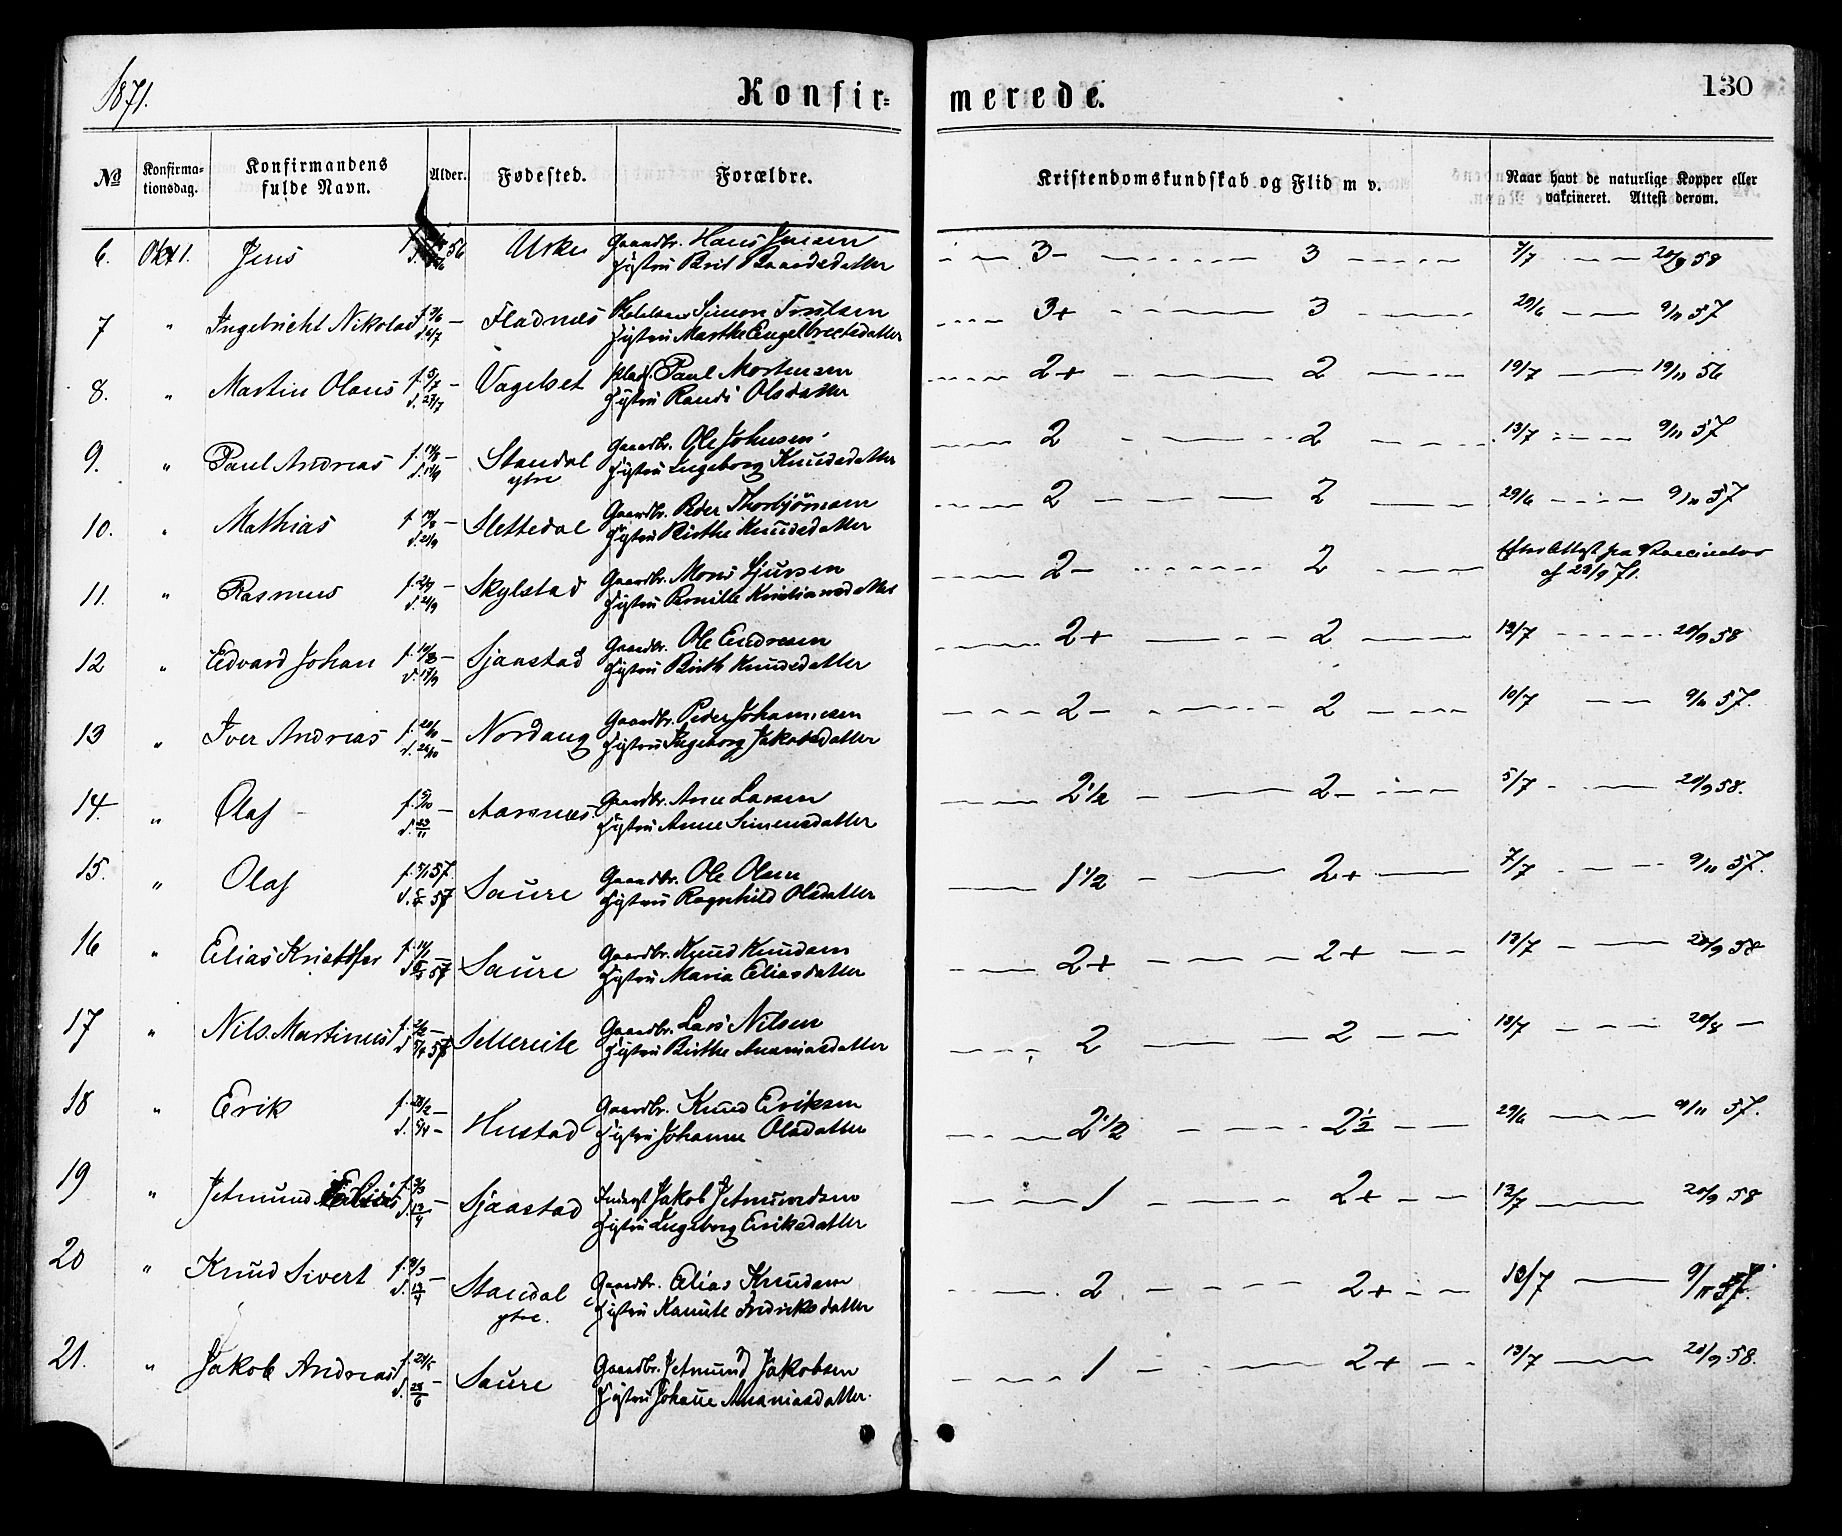 1871.
Konfir=
merede.
130
No
Konfirma-
tionsdag.
Konfirmandens
fulde Navn.
Alder.
Fødested.
Forældre.
Kristendomskundskab og Flid m v.
Naar havt de naturlige Kopper eller
vakcineret. Attest derom.
6. Okt 1. Jens 56 Urke Gaardbr. Hans Jensen
Hustru Brit Baardsdatter
3- 3 7/7 20/9 58
7 " Ingebricht Nikolai Fladnæs Simon Troilsen
Hustru Marthe Engelbretsdatter
3+ 3 29/6 9/11 57
8. " Martin Olaus f. 5/7 - Vagelset Paul Mortensen
d. 27/7 Hustru Randi Olsdatter
2+ 2 19/7 19/11 56
9. " Paul Andreas Standal Gaardbr. Ole Johnsen
ytre Hustru Ingeborg Knudsdatter
2 2 13/7 9/11 57
10. " Mathias Slettedal Gaardbr. Peder Thorbjörnsen
Hustru Birthe Knudsdatter
2 2 29/6 9/11 57
11. " Rasmus Skylstad Gaardbr. Mons Sjursen
Hustru Pernille Kristiansdatter
2- 2 Efter Attest fra Vaccinator
af 23/9 71.
12 " Edvard Johan Sjaastad Gaardbr. Ole Endresen
d. 17/9 Hustru Birth Knudsdatter
2+ 2 13/7 20/9 58
13 " Iver Andreas f. 20/10 Nordang Gaardbr. Peder Johannesen
d. 26/10 Hustru Ingeborg Jakobsdatter
2- 2 10/7 9/11 57.
14. " Olaf f. 9/10 - Aarsnæs Gaardbr. Arne Larsen
d. 23/11 Hustru Anne Simensdatter
2 1/2 2- 5/7 20/9 58.
15. " Olaf f. 5/1 57. Saure Gaardbr. Ole Olsen
57 Hustru Ragnhild Olsdatter
1 1/2 2+ 7/7 9/11 57.
16 " Elias Kristofer Saure Gaardbr. Knud Knudsen
57 Hustru Maria Eliasdatter
2+ 2+ 13/7 20/9 58
17 " Nils Martinus Sellereite Gaardbr. Lars Nilsen
Hustru Birthe Ananiasdatter
2 2 13/7 20/8 -
18 " Erik f. 28/2 - Hustad Gaardbr. Knud Eriksen
d. 5/4 - Hustru Johanne Olsdatter
2 1/2 2 1/2 29/6 9/11 57.
19 " Jetmund Elias Sjaastad Inderst Jakob Jetmundsen
d. 13/4 Hustru Ingeborg Eriksdatter
1 2+ 13/7 20/9 58
20 " Knud Sivert f. 9/3 - Standal Gaardbr. Elias Knudsen
d. 13/4 ytre. Hustru Kanute Fredriksdatter
2 2+ 13/7 9/11 57.
21. " Jakob Andreas f. 21/5 Saure Gaardbr. Jetmund Jakobsen
d. 28/6 Hustru Johanne Ananiasdatter.
1 2+ 13/7 20/9 58.